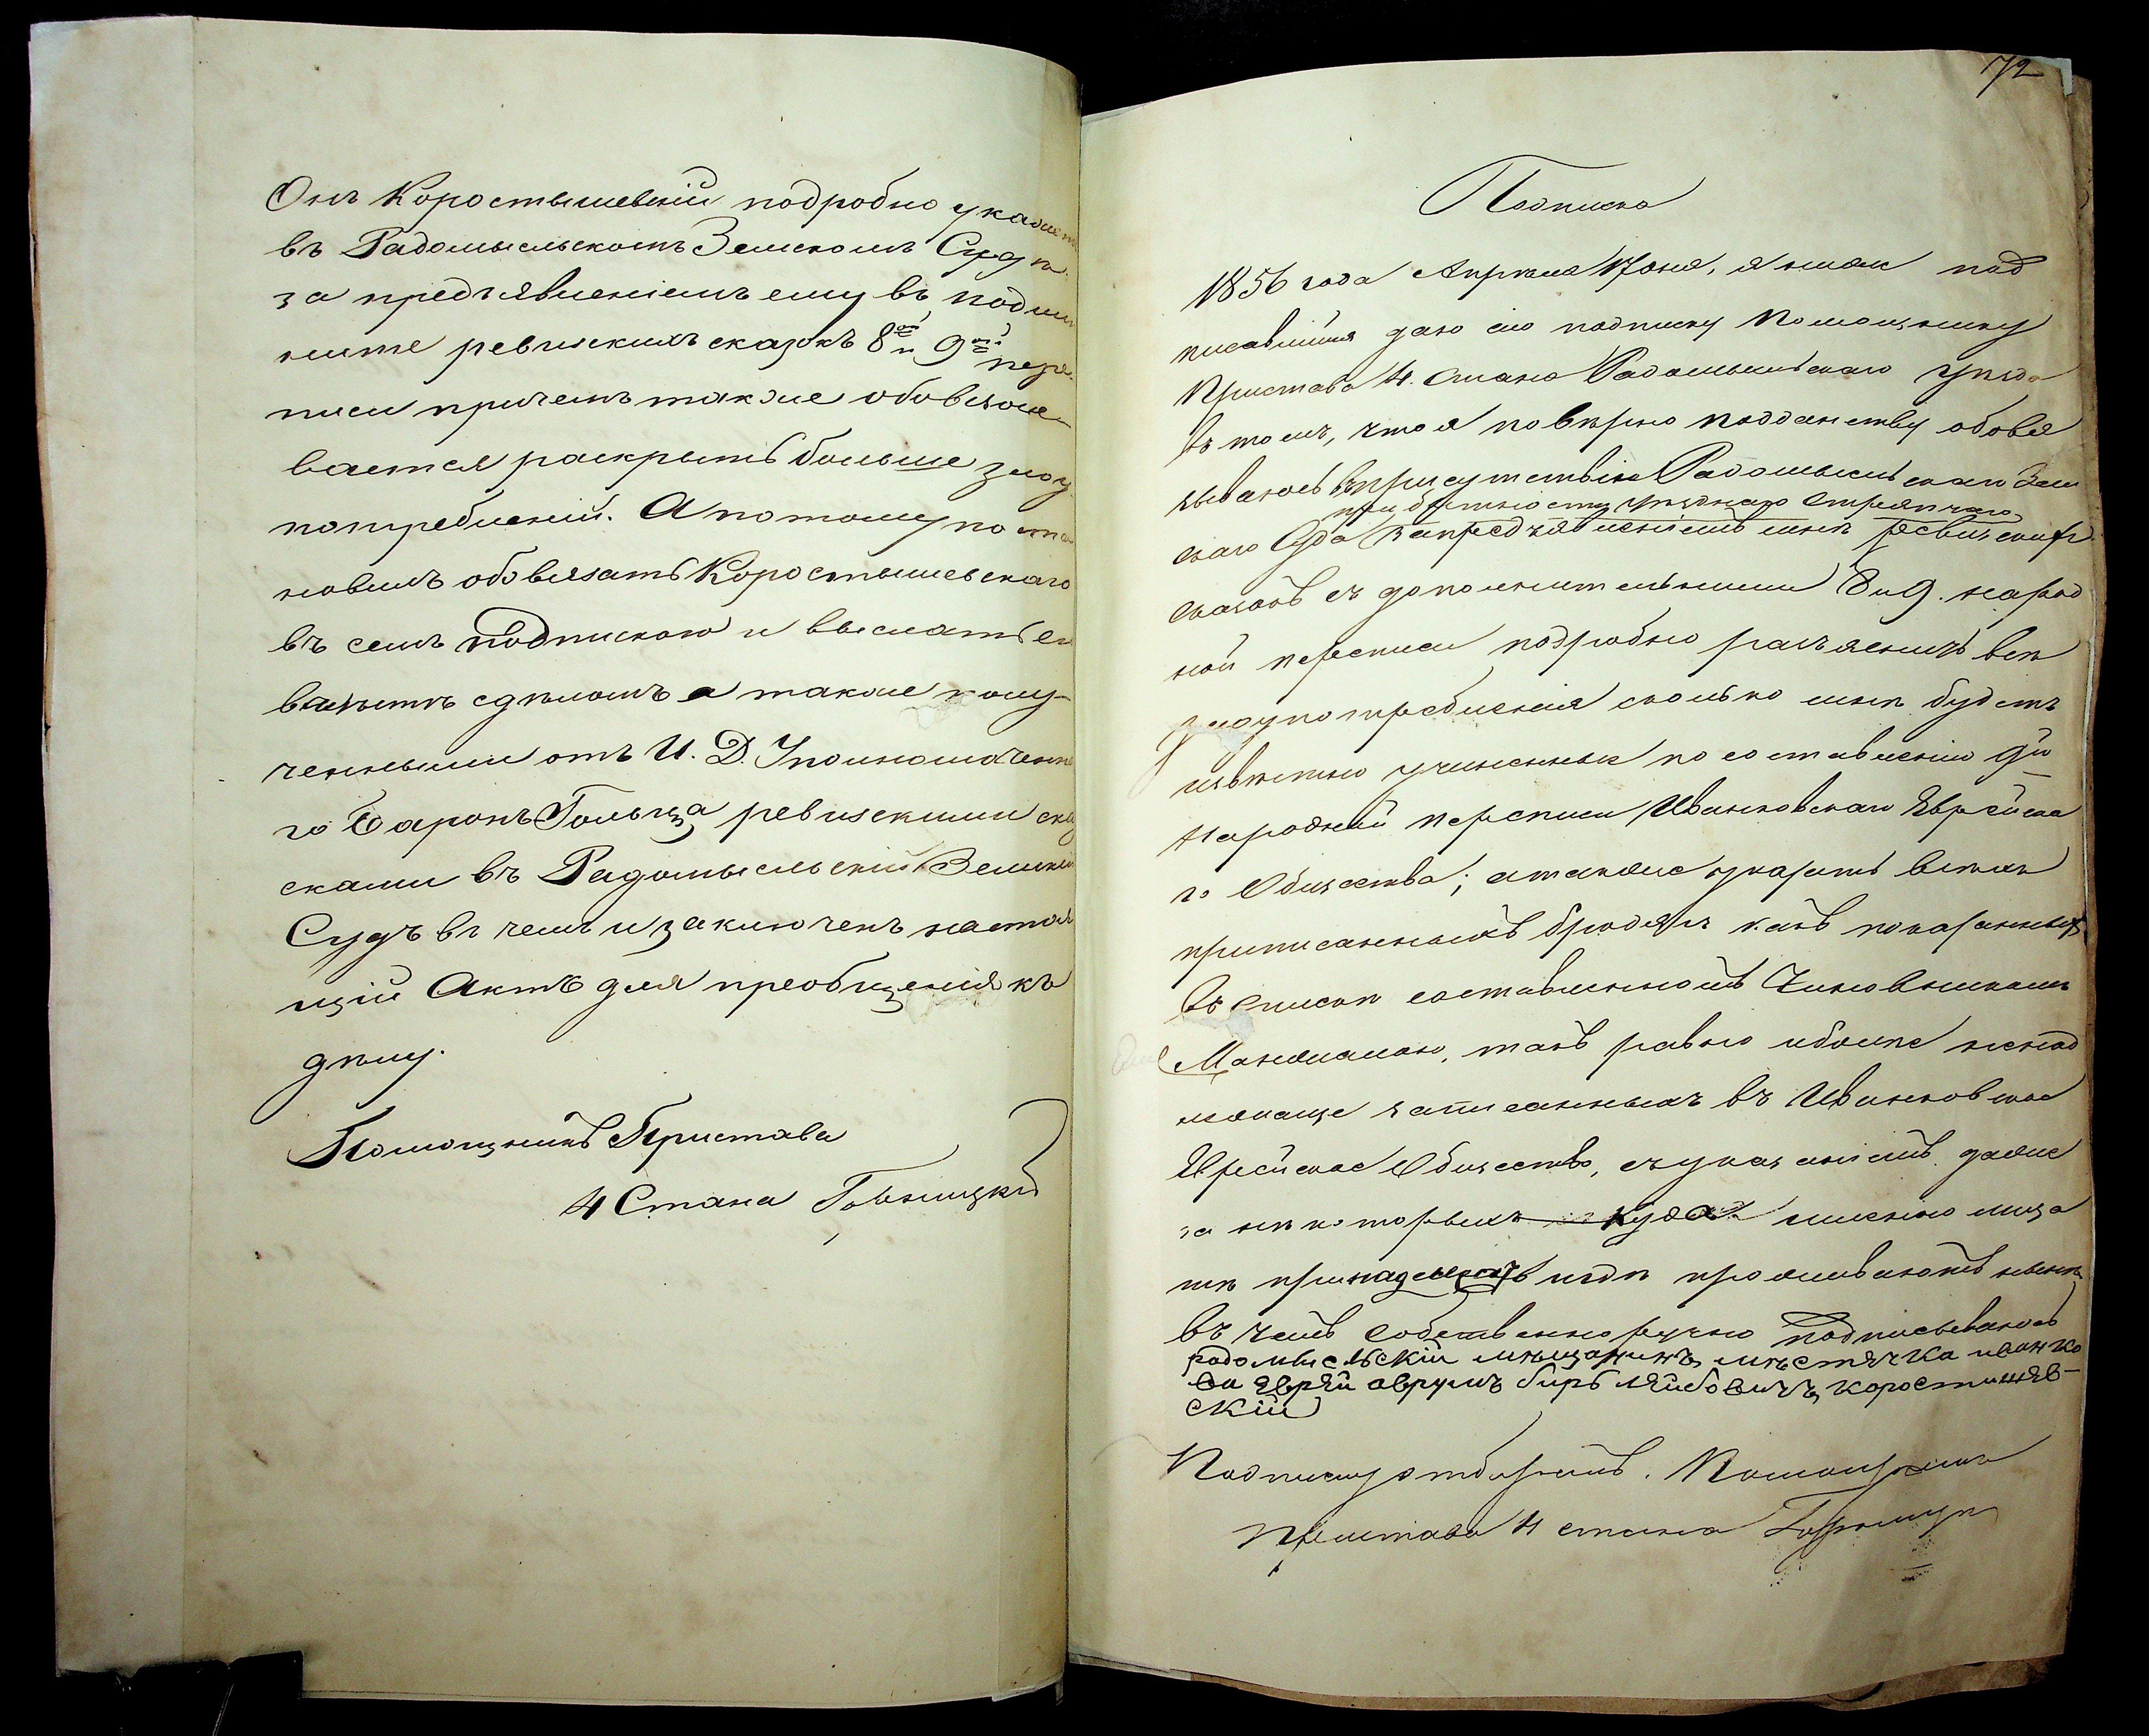 Онъ Коростышевскій подробно укажетъ
въ Радомысльскомъ Земскомъ Судѣ
за предъявленіемъ ему въ подлин
никѣ ревизскихъ сказокъ 8ой и 9ой пере
писи причемъ также обовязы
вается раскрыть больше злоу
потребленій. А потому поста
новилъ обовязать Коростышевскаго
въ семъ подпискою и выслать ея
вмѣстѣ сдѣломъ а также полу-
ченными отъ И. Д. Уполномоченна
го Баронъ Гольца ревизскими ска
сками въ Радомысльскій Земскій
Судъ въ чемъ и заключенъ настоя
щій Актъ для преобщенія къ
дѣлу.
Помощникъ Пристава
4 Стана
72
Подписка
1856 года Апрѣля 17 дня, я ниже под
писавшійся даю сію подписку Помощнику
Пристава 4. Стана Радомысльскаго уѣзда
въ томъ, что я по вѣрно подданству обовя
зываюсь въ присутствіи Радомысльскаго Зем
при бытности уѣзднаго Стряпчаго
скаго Суда запредъявленіемъ мнѣ ревизскихъ
сказокъ съ дополнительными 8 и 9. народ
ной переписи подробно разъяснить всѣ
злоупотребленія сколько мнѣ будетъ
извѣстно учиненныя по составленію 9й
народной переписи Иванковскаго Еврейска
го Общества; атакже указать всѣхъ
приписанныхъ бродягъ какъ показанныхъ
въ спискѣ составленномъ Чиновникомъ
такъ равно иболѣе ненад
лежаще записанныхъ въ Иванковское
Еврейское Общество, съуказаніемъ даже
за нѣкоторыхъ куда именно лица
тѣ принадлежатъ игдѣ проживаютъ нынѣ
въ чемъ собственноручно подписываюсь
радомысльскій мѣщанинъ мѣстячка иванко
ва яврей аврумъ биръ ляйбовичъ коростишяв-
скій
Подписку отбиралъ. Помощникъ
Пристава 4 стана